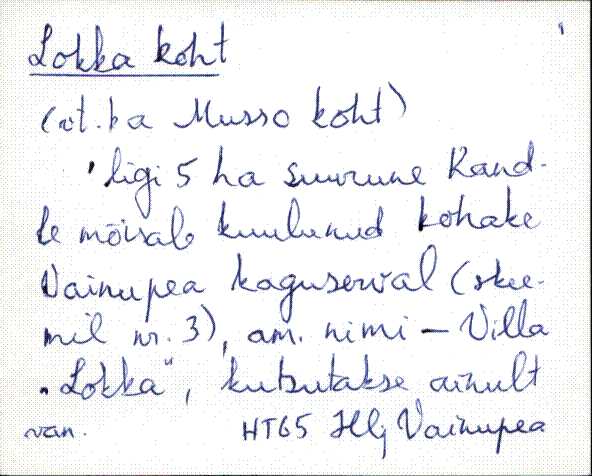 Lokka koht
(vt. ka Musso koht)
'ligi 5 ha suurune Kand-
le mõisale kuulunud kohake
Vainupea kaguserval (skee-
mil nr. 3), am. nimi – Villa
„Lokka", kutsutakse ainult
van. HT65 Hlj Vainupea